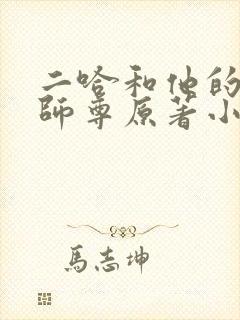 二哈和他的
師尊原著小
馬志坤